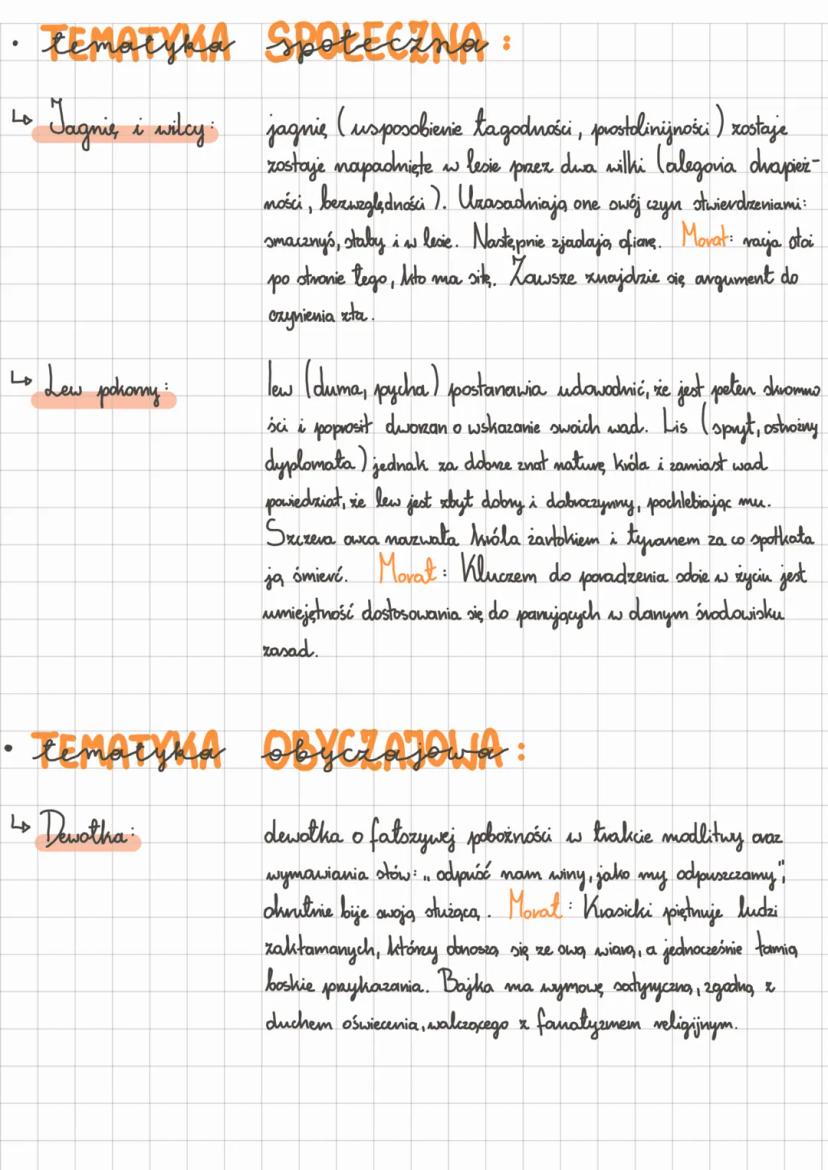 • tematyka społeczna:
↳ Jagnię i wilcy: jagnię (usposobienie łagodności, prostolinijności) zostaje
zostaje napadnięte w lesie przez dwa wilki (alegoria drapież-
ności, bezwzględności). Uzasadniają one swój czyn stwierdzeniami:
smacznyś, słaby i w lesie. Następnie zjadają ofiarę. Morał: racja stoi
po stronie tego, kto ma siłę. Zawsze znajdzie się argument do
czynienia zła.
↳ Lew pokorny: lew (duma, pycha) postanawia udowodnić, że jest pełen skromno
ści i poprosił dworzan o wskazanie swoich wad. Lis (spryt, ostrożny
dyplomata) jednak za dobrze znał naturę króla i zamiast wad
powiedział, że lew jest zbyt dobry i dobroczynny, pochlebiając mu.
Szczera owca nazwała króla żarłokiem i tyranem za co spotkała
ją śmierć. Morał: Kluczem do poradzenia sobie w życiu jest
umiejętność dostosowania się do panujących w danym środowisku
zasad.
• tematyka obyczajowa:
↳ Dewotka: dewotka o fałszywej pobożności w trakcie modlitwy oraz
wymawiania słów: „odpuść nam winy, jako my odpuszczamy",
okrutnie bije swoją służącą. Morał: Krasicki piętnuje ludzi
zakłamanych, którzy obnoszą się ze swą wiarą, a jednocześnie łamią
boskie przykazania. Bajka ma wymowę satyryczną, zgodną z
duchem oświecenia, walczącego z fanatyzmem religijnym.